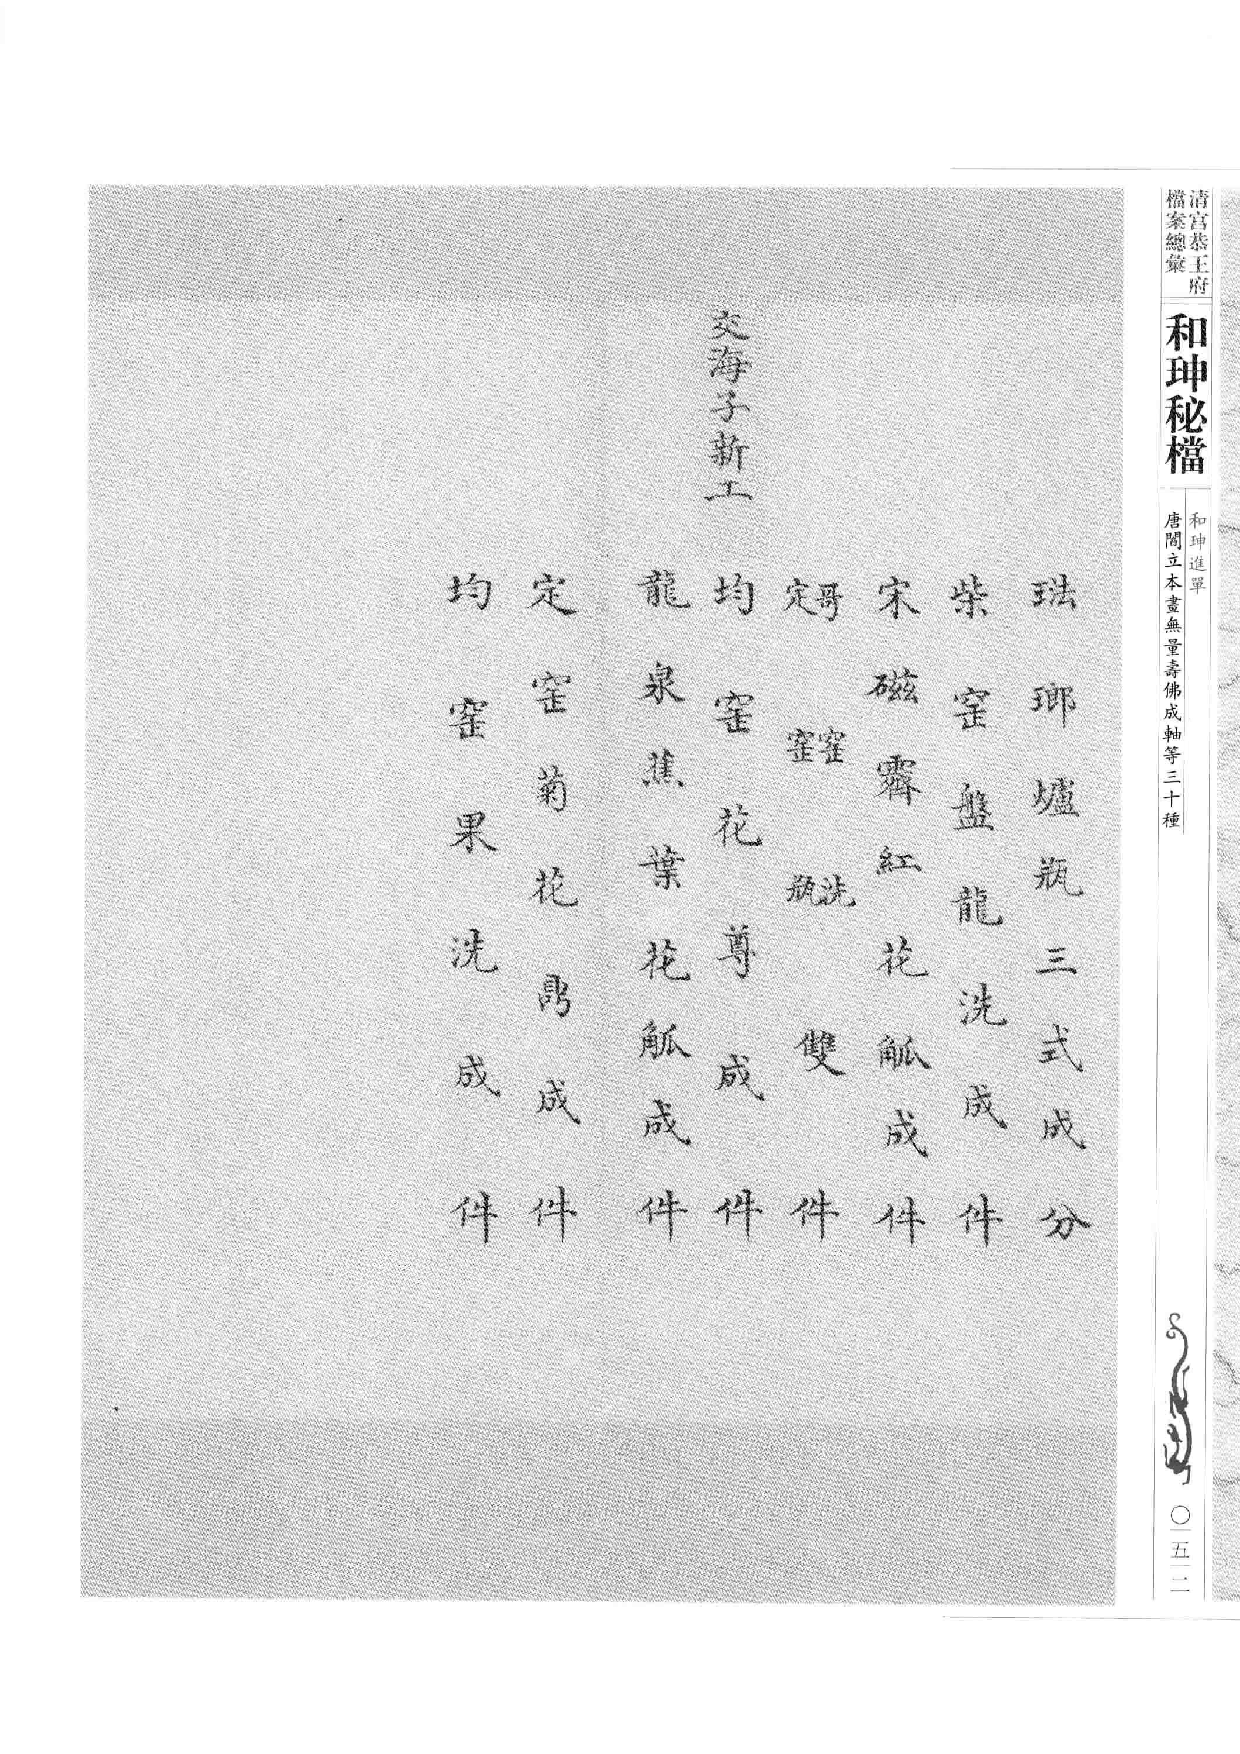 清宮恭王府
檔案總彙
和珅秘檔
和珅進單
唐閻立本畫無量壽佛成軸等三十種
〇五二
琺瑯爐瓶三式成分
柴窑盤龍洗成件
宋磁霽紅花觚成件
哥窑洗
定窑瓶
雙件
交海子新工
均窑花尊成件
龍泉蕉葉花觚成件
定窑菊花鼎成件
均窑果洗成件